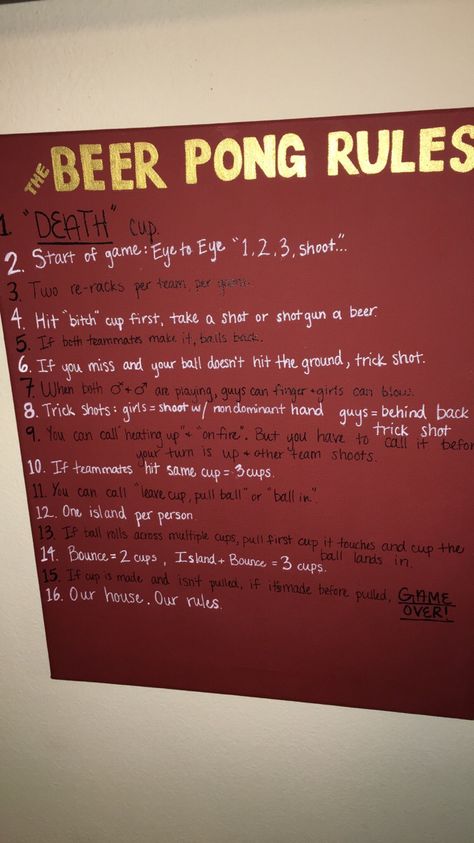 THE BEER PONG RULES
1. "DEATH" cup.
2. Start of game: Eye to Eye "1, 2, 3, shoot...
3. Two re-racks per team, per game.
4. Hit "bitch" cup first, take a shot or shotgun a beer.
5. If both teammates make it, balls back.
6. If you miss and your ball doesn't hit the ground, trick shot.
7. When both ♂+♂ are playing, guys can finger + girls can blow.
8. Trick shots: girls = shoot w/ nondominant hand guys = behind back
trick shot
9. You can call "heating up" + "on fire". But you have to call it befor
your turn is up + other team shoots.
10. If teammates hit same cup = 3 cups.
11. You can call "leave cup, pull ball" or "ball in".
12. One island per person.
13. If ball rolls across multiple cups, pull first cup it touches and cup the
ball lands in.
14. Bounce = 2 cups, Island + Bounce = 3 cups.
15. If cup is made and isn't pulled, if it's made before pulled, GAME
OVER!
16. Our house. Our rules.